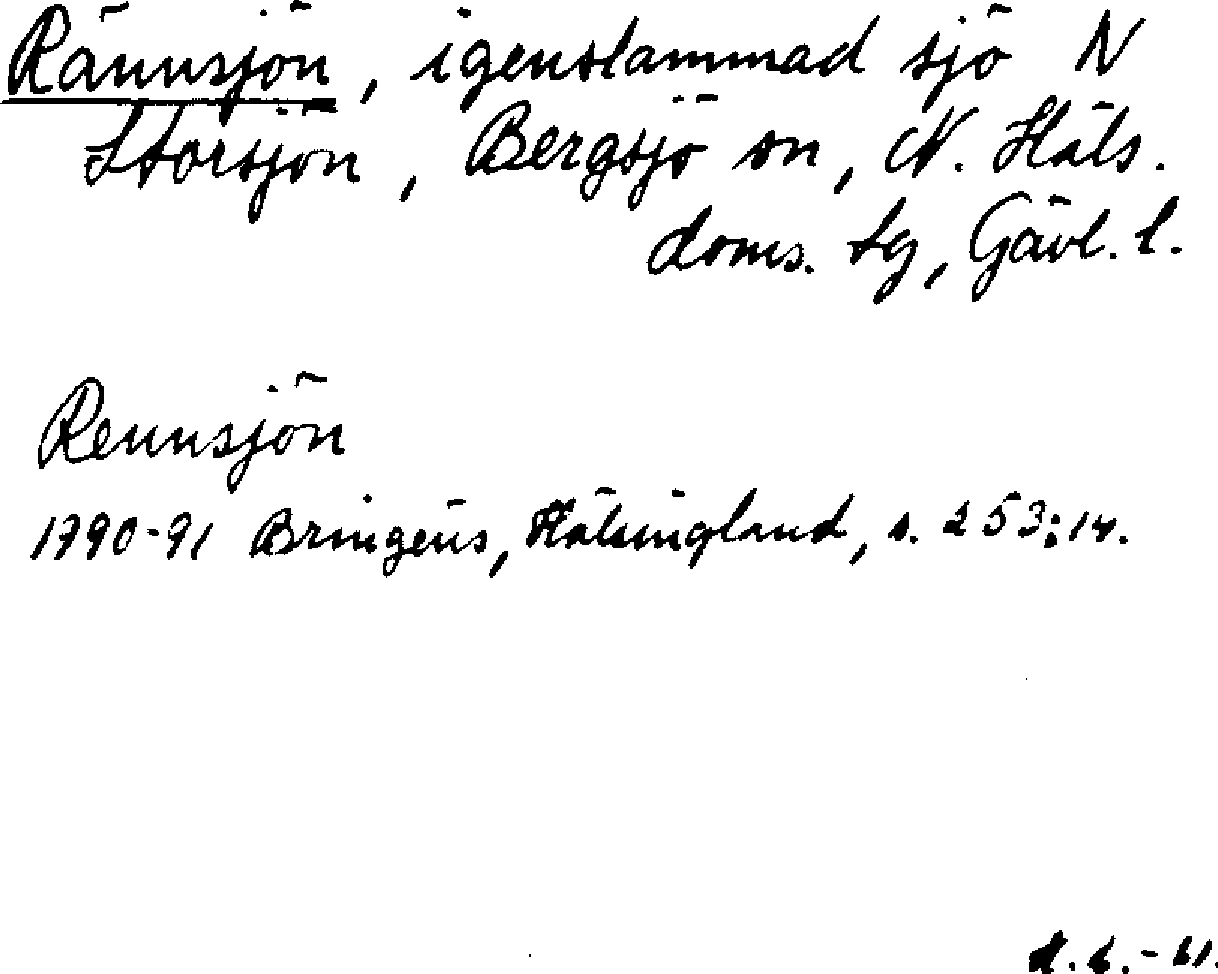 Rännsjön, igenslammad sjö N
Storsjön, Bergsjö sn, N. Häls.
doms. tg, Gävl. l.
Rennsjön
1790-91 Bringéus, Hälsingland, s. 253:14.